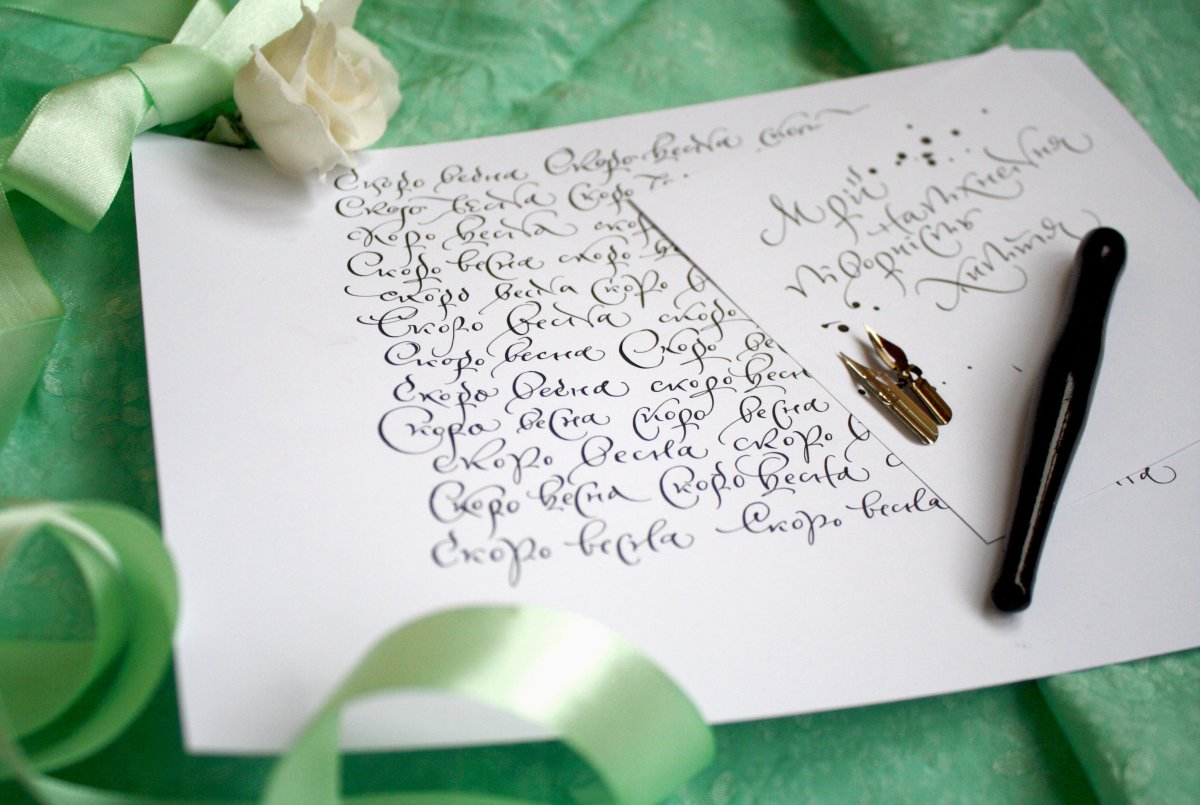 Скоро весна Скоро весна скоро
Скоро весна Скоро
скоро весна скор
Скоро весна скоро в
скоро весна Скоро в
Скоро весна скоро
Скоро весна Скоро ве
Скоро весна скоро весн
Скоро весна скоро весна
скоро весна скоро в
Скоро весна Скоро весна с
Скоро весна Скоро весна
Мрій
Натхнення
на